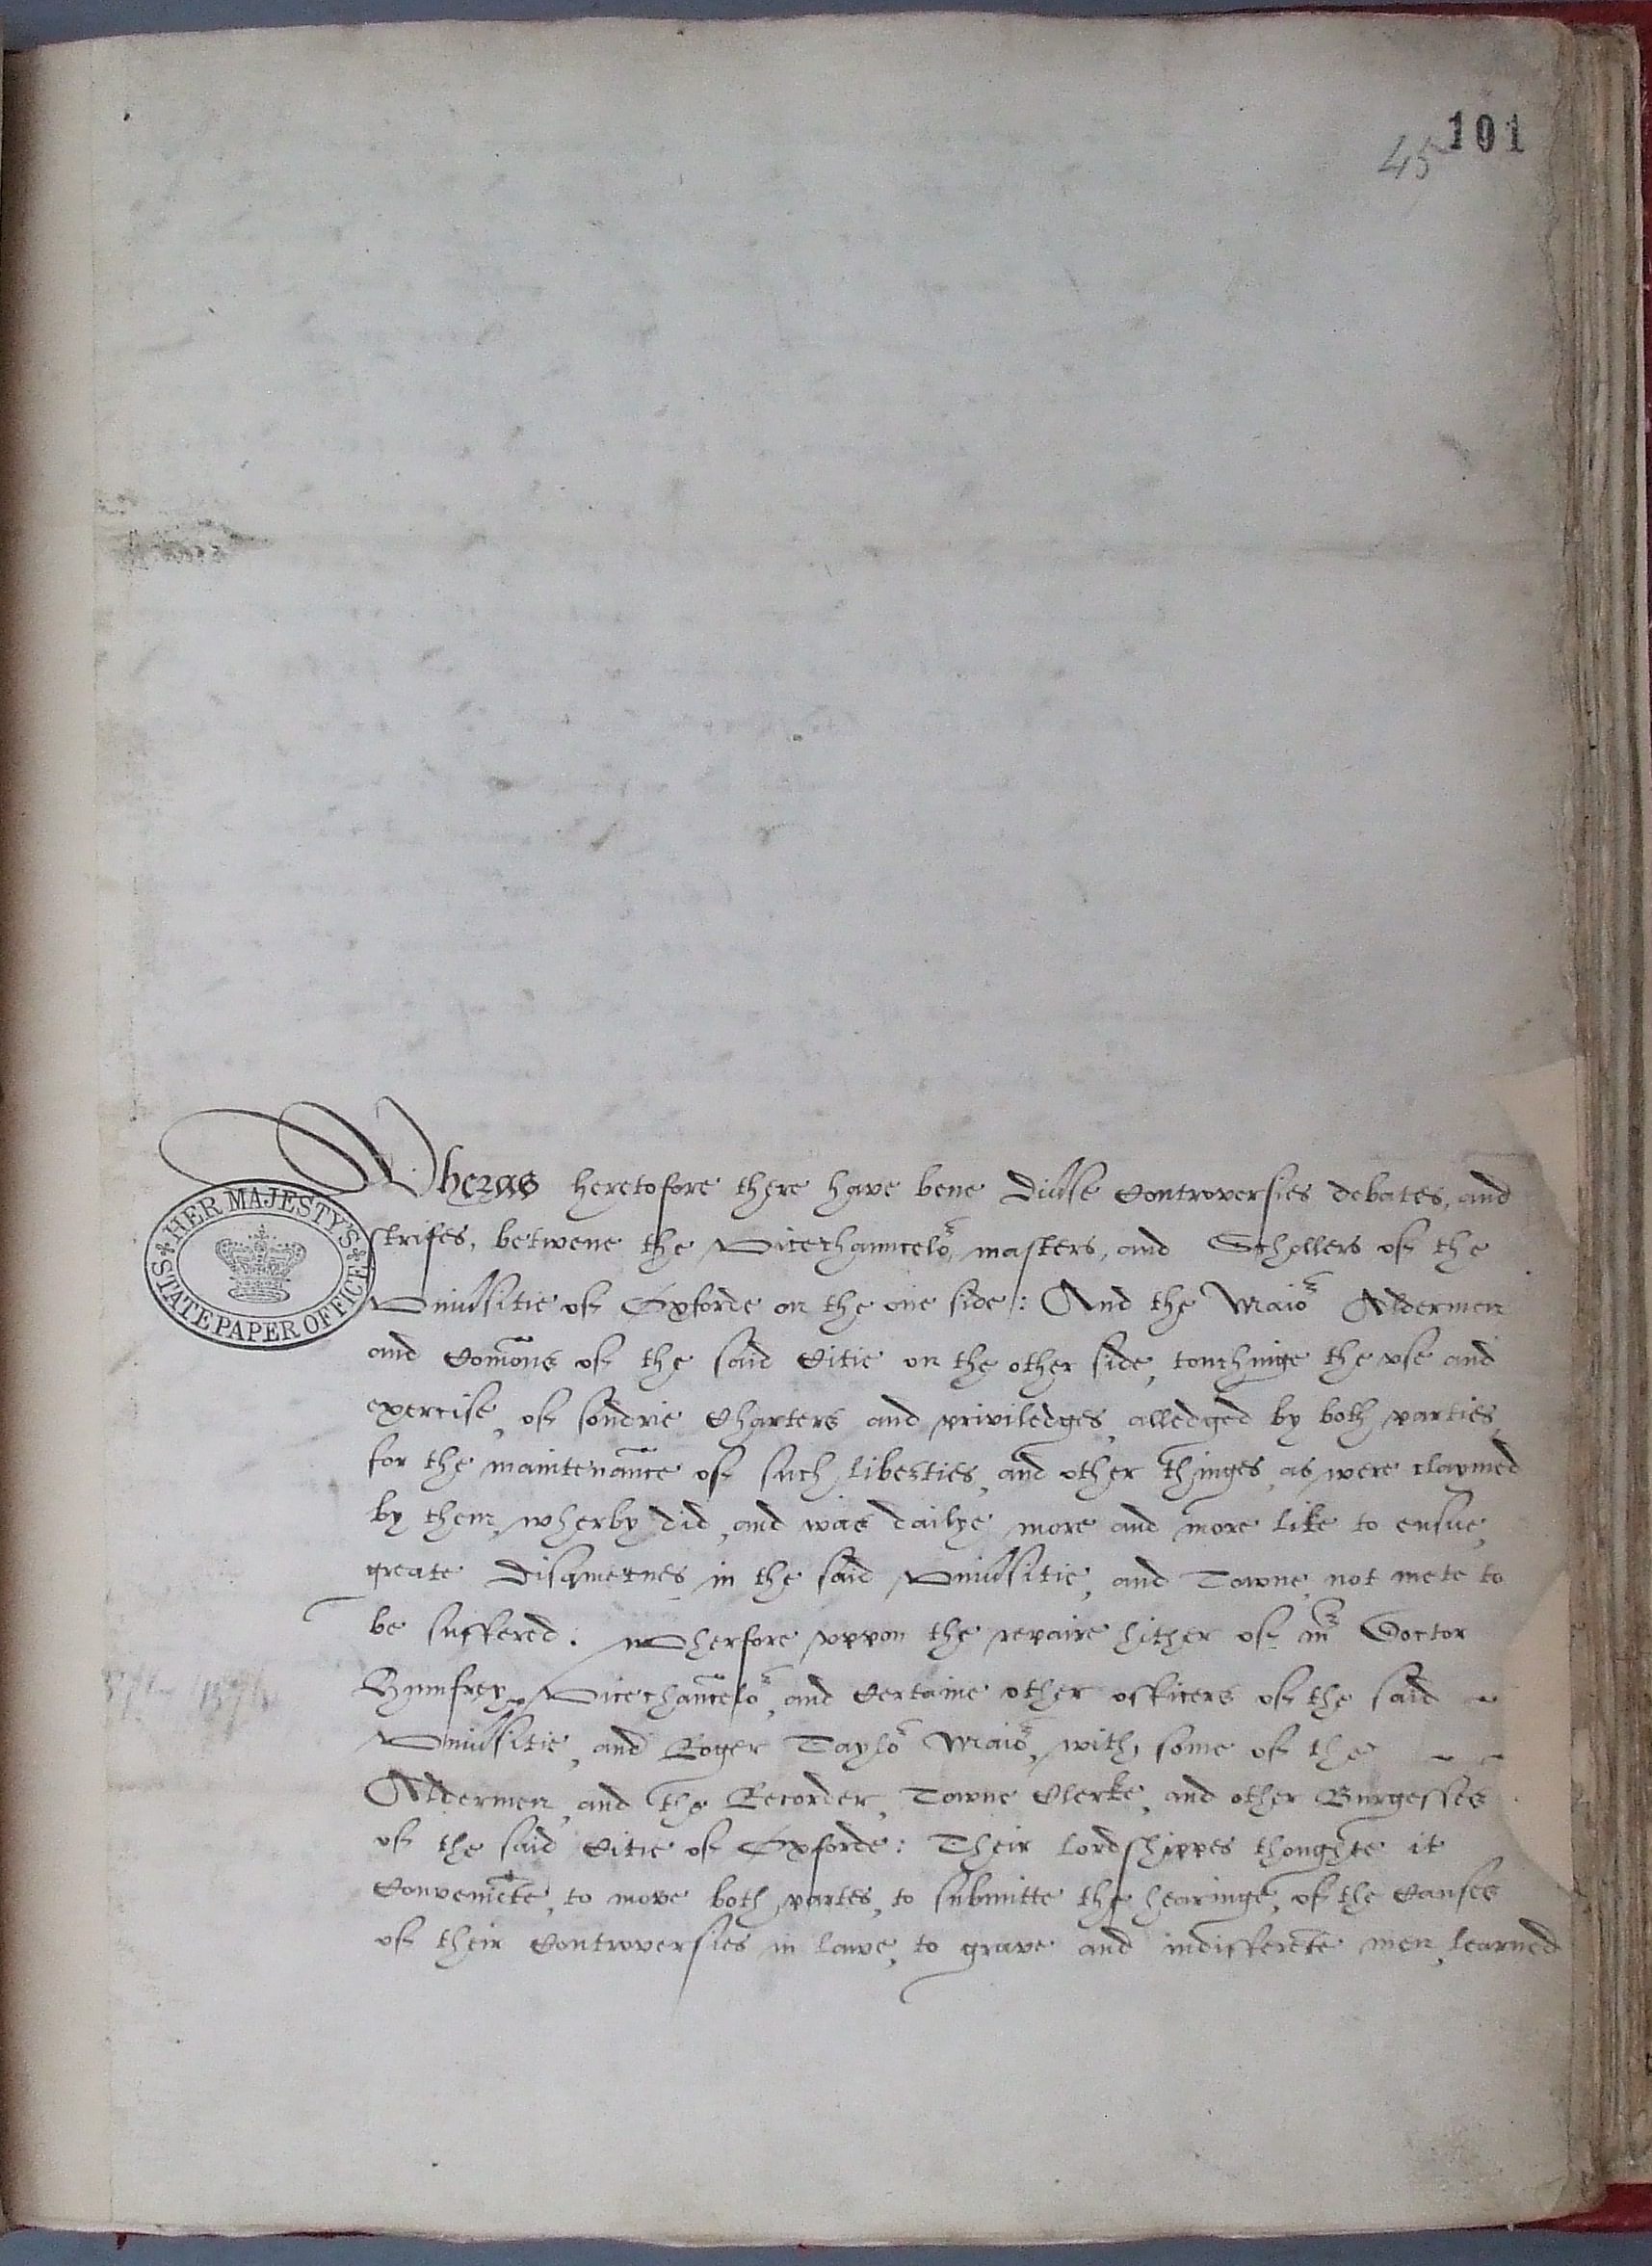 101
45
Wheras heretofore there have bene diuerse Controversies debates, and
strifes, betwene the Vicechauncelor, masters, and Schollers of the
Vniuersitie of Oxforde on the one side: And the Maior Aldermen
and Comons of the said Citie on the other side, touchinge the vse and
exercise, of sondrie Charters and priviledges, alledged by both parties,
for the maintenance of such liberties, and other thinges, as were claymed
by them, wherby did, and was dailye more and more like to ensue,
greate disquietnes in the said Vniuersitie, and Towne, not mete to
be suffered. Wherfore vppon the repaire hither of mr Doctor
Humfrey Vicechancelor, and Certaine other officers of the said
Vniuersitie, and Roger Taylor Maior, with some of the
Aldermen, and the Recorder, Towne Clerke, and other Burgesses
of the said Citie of Oxforde: Their lordshippes thoughte it
Conveniete, to move both partes, to submitte the hearinge, of the Causes
of their Controversies in lawe, to grave and indifferete men, learned
HER MAJESTY'S STATE PAPER OFFICE